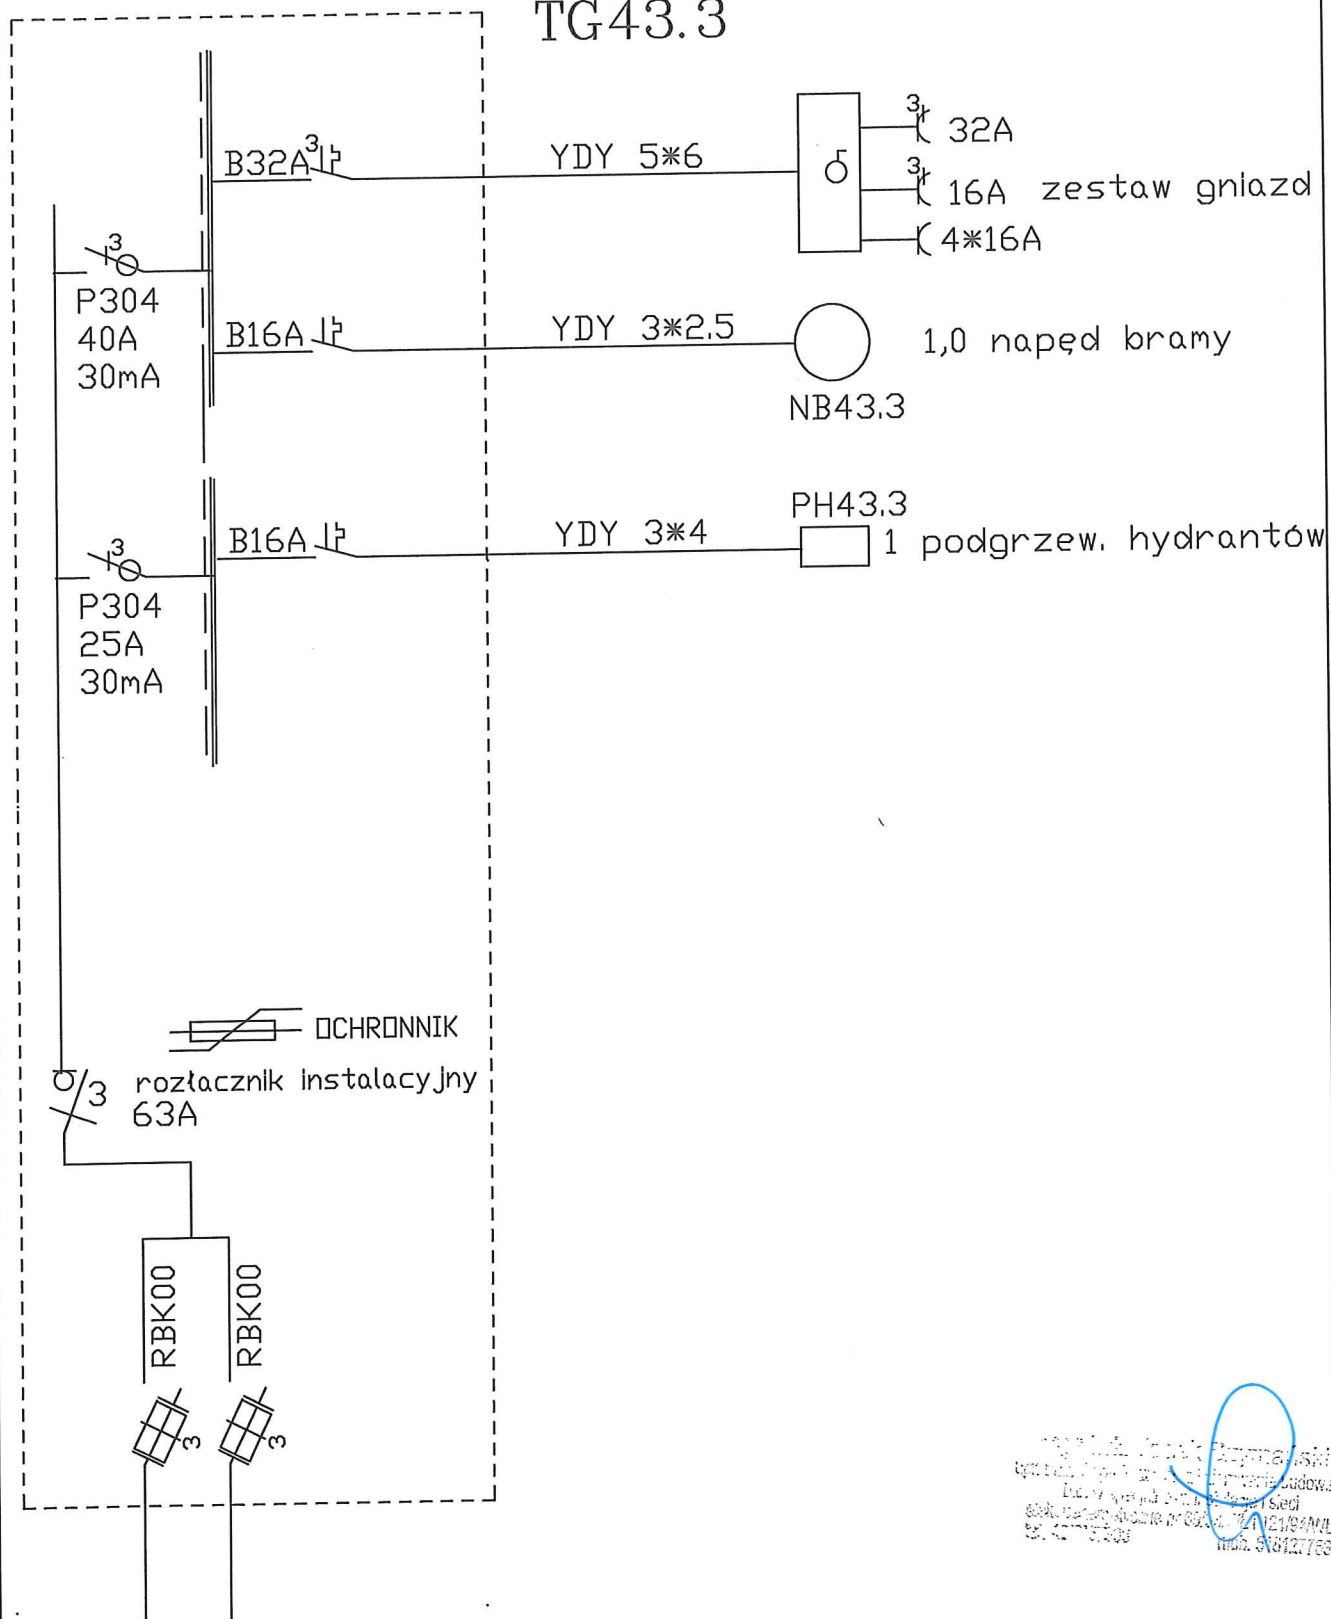 TG43.3
B32A 3
YDY 5*6
3 32A
3 16A zestaw gniazd
4*16A
3
P304
40A
30mA
B16A
YDY 3*2.5
1,0 napęd bramy
NB43.3
3
P304
25A
30mA
B16A
YDY 3*4
PH43.3
1 podgrzew. hydrantów
OCHRONNIK
3 rozłacznik instalacyjny
63A
RBK00
RBK00
3
3